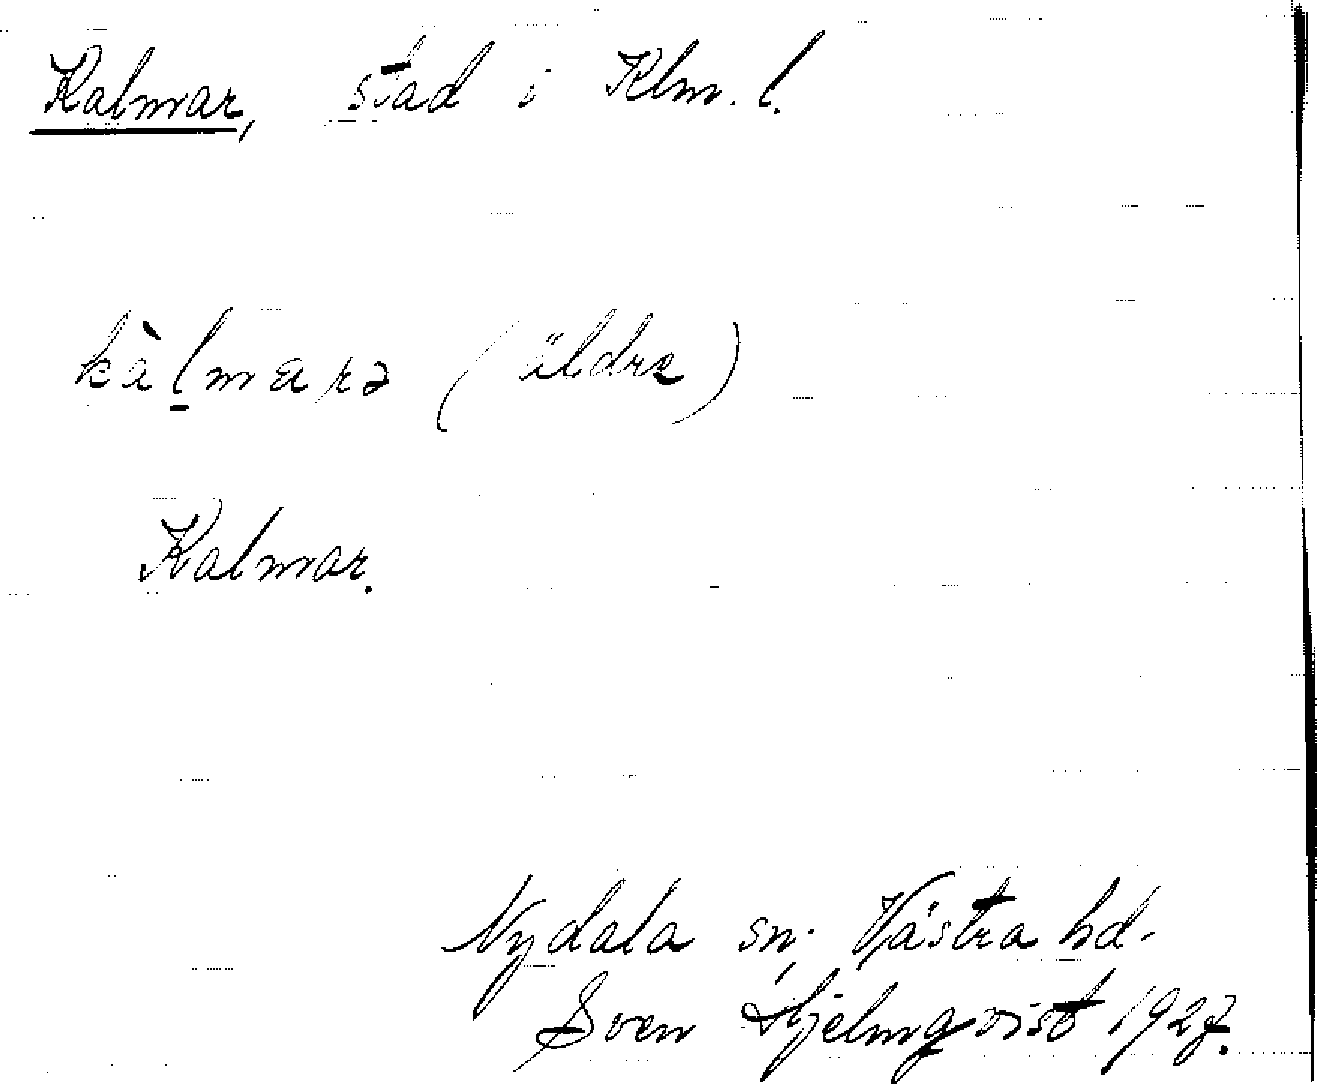 Kalmar, stad i Klm. l.
kàl̠marə (äldre)
Kalmar.
Nydala sn, Västra hd.
Sven Hjelmqvist 1927.